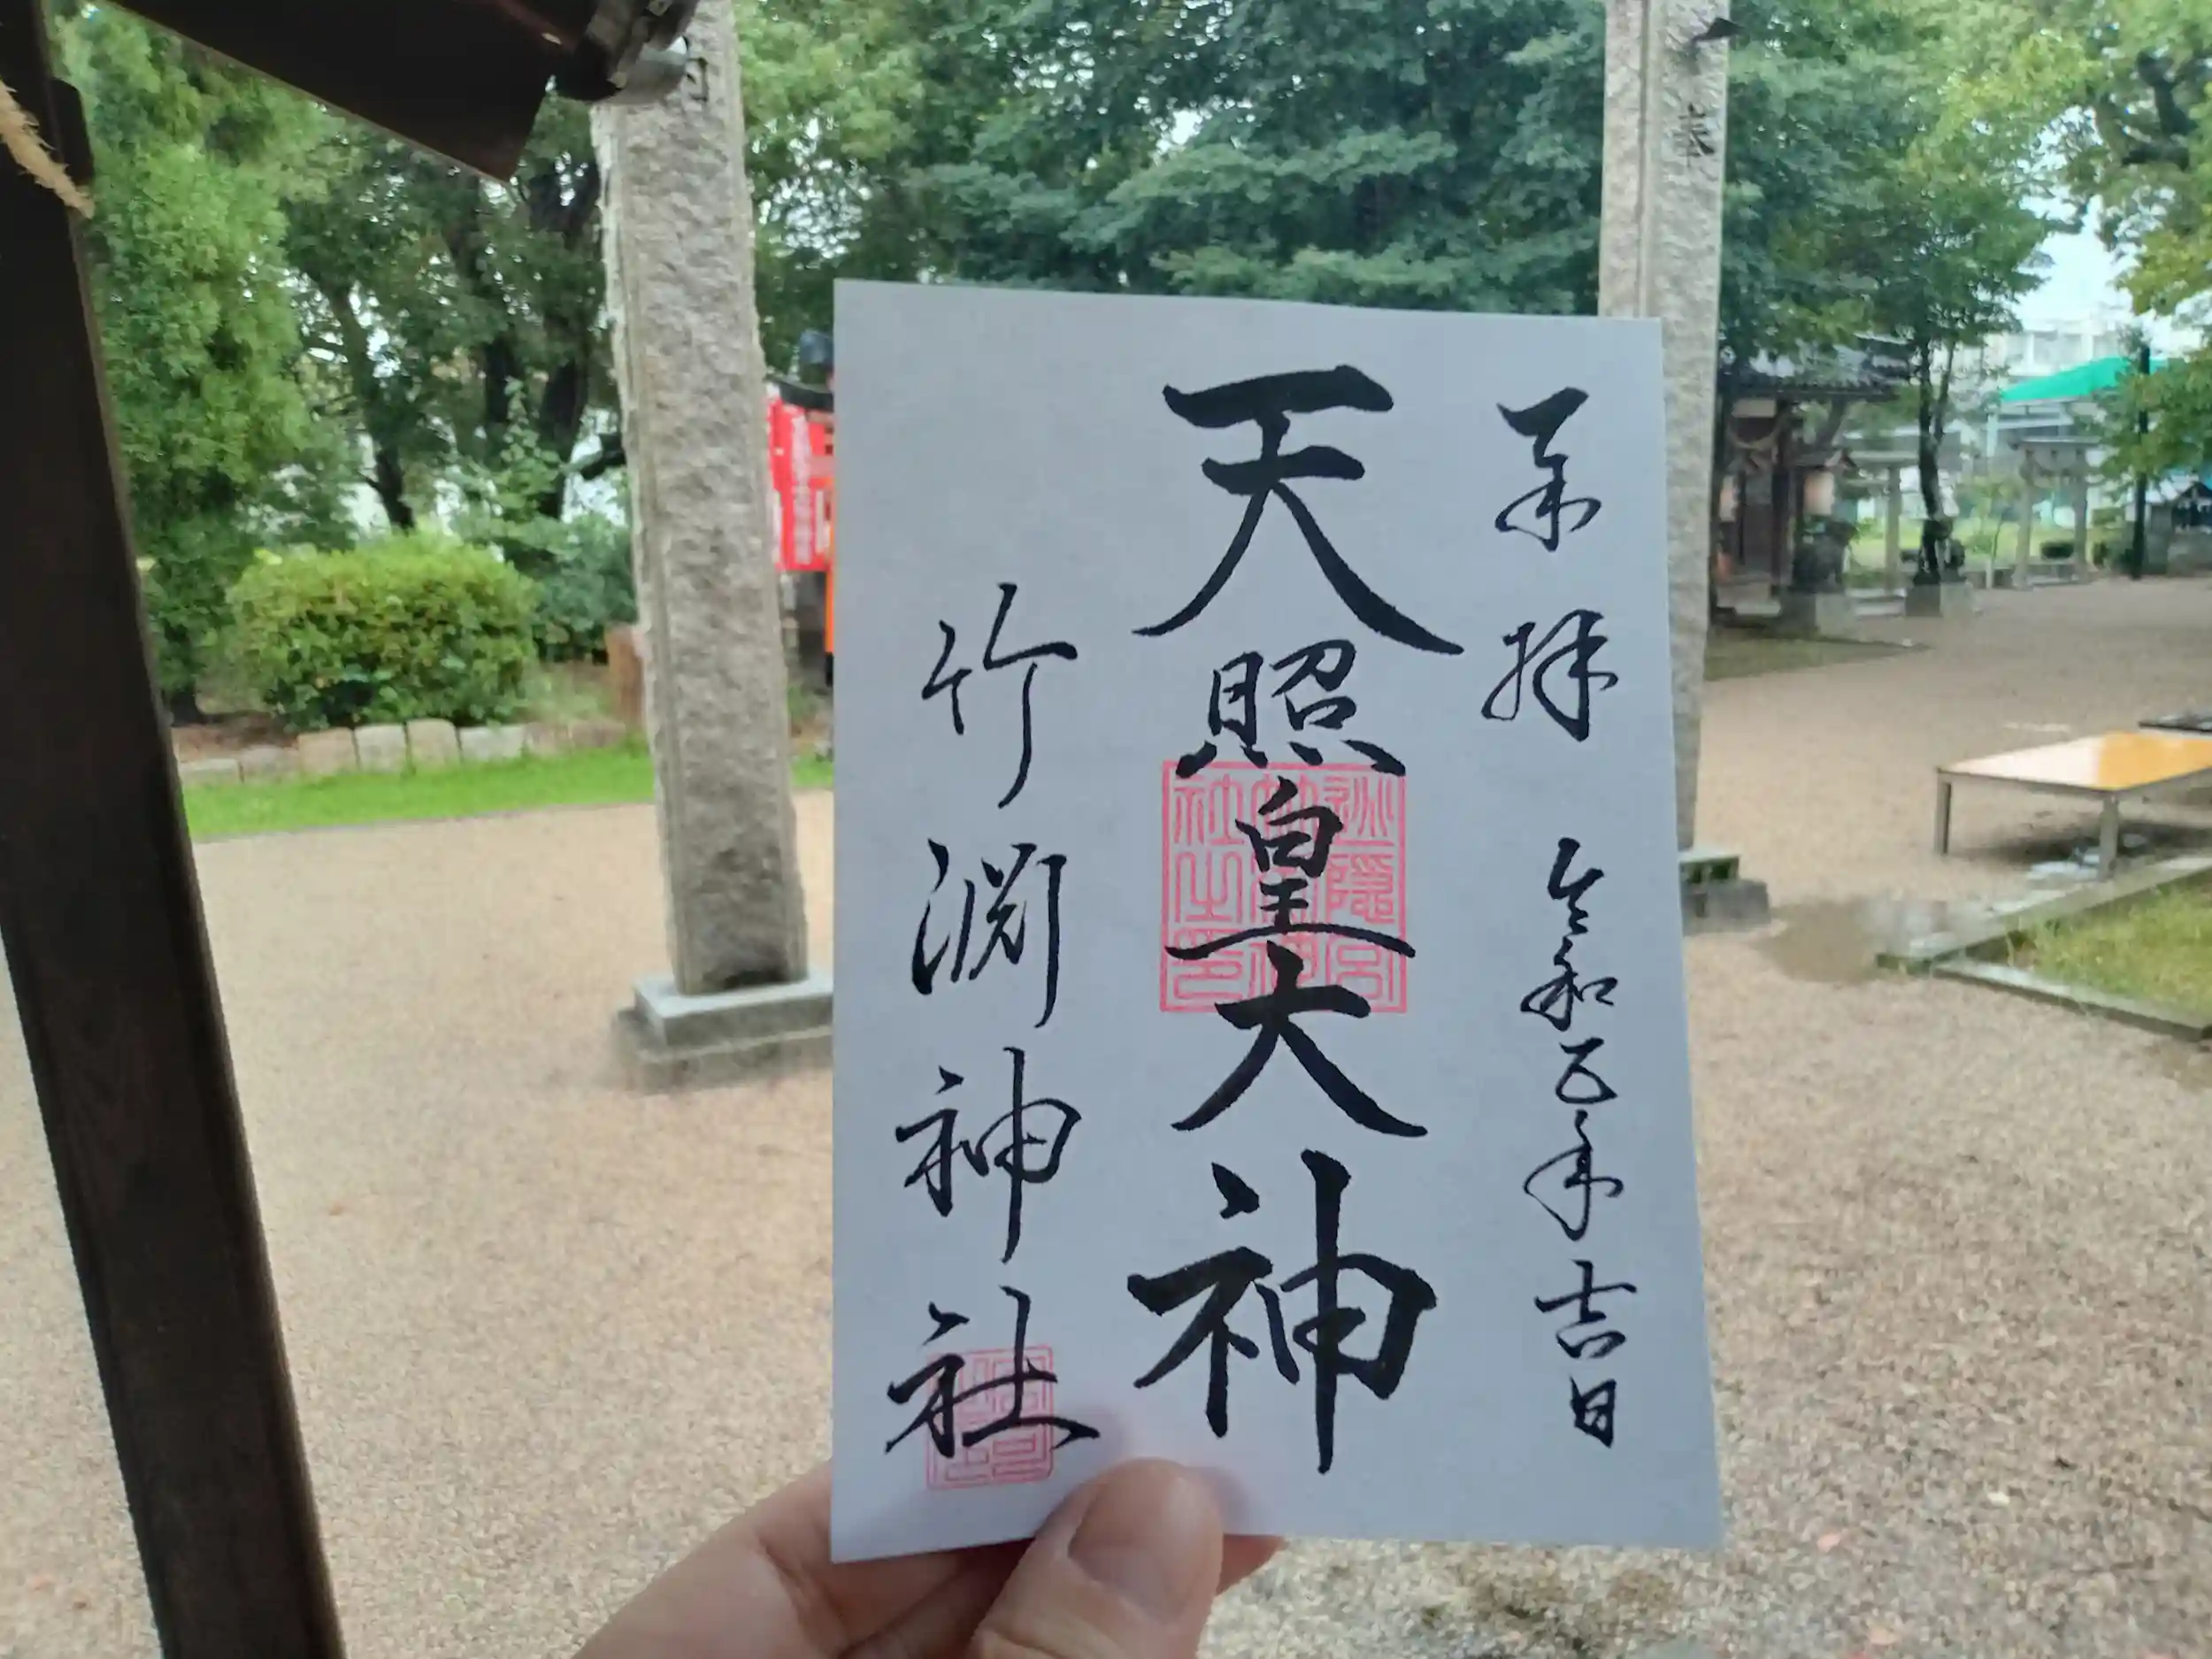 奉拝 令和五年吉日
天照皇大神
竹渕神社
奉